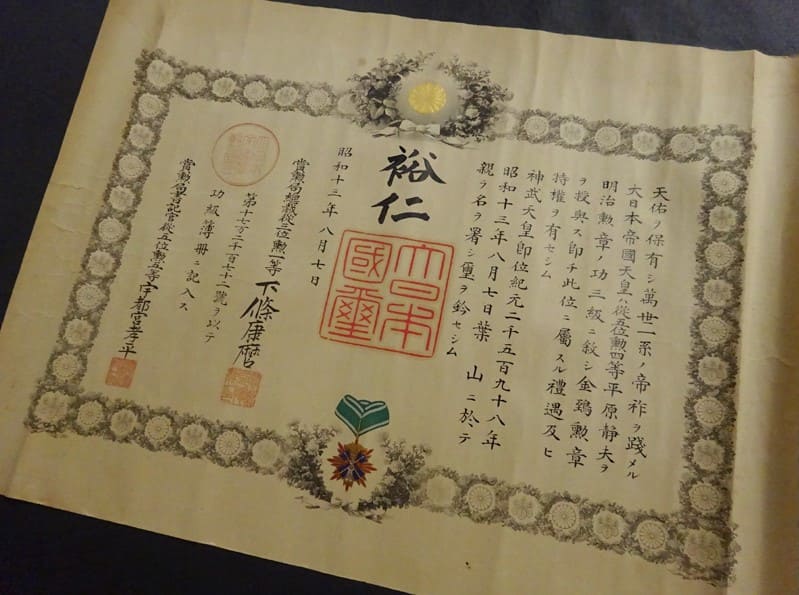 天佑ヲ保有シ萬世一系ノ帝祚ヲ踐メル
大日本帝國天皇ハ從五位勲四等平原靜夫ヲ
明治勲章ノ功三級ニ敍シ金鵄勲章
ヲ授與ス即チ此位ニ屬スル禮遇及ヒ
特權ヲ有セシム
神武天皇即位紀元二千五百九十八年
昭和十三年八月七日葉山ニ於テ
親ラ名ヲ署シ璽ヲ鈐セシム
裕仁
大日本國璽
昭和十三年八月七日
賞勲局總裁從三位勲一等下條康麿
第十七万二千百七十二號ヲ以テ
功級簿冊ニ記入ス
賞勲局書記官從五位勲五等宇都宮孝平